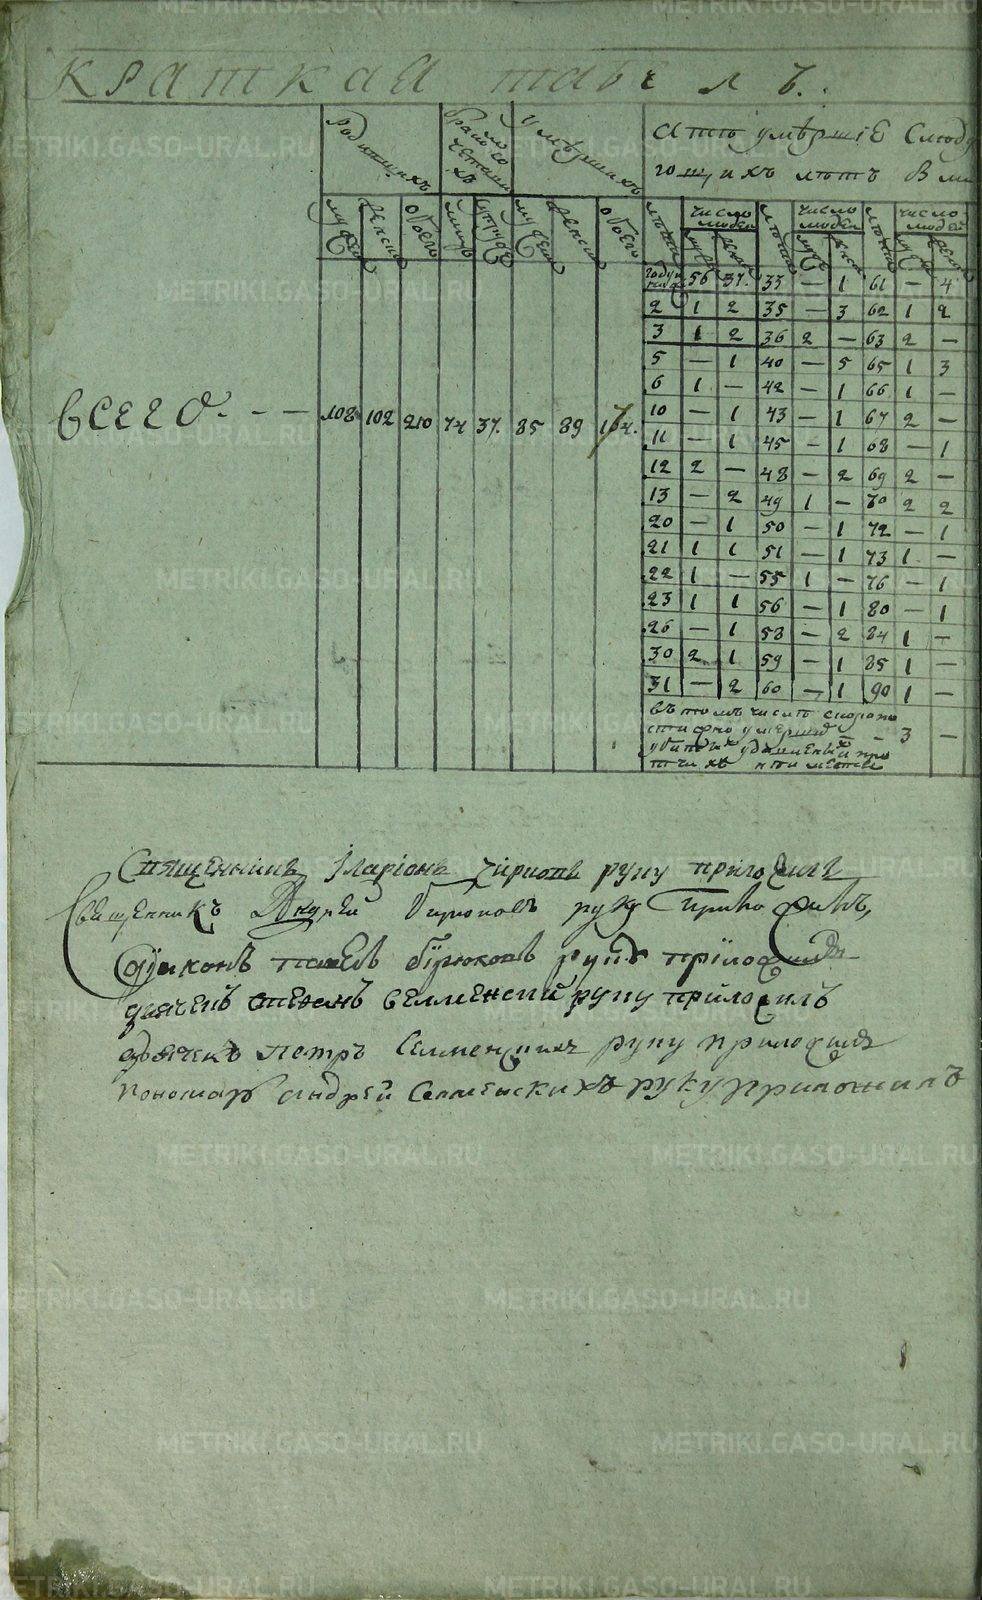 Краткая табель.
родившихъ
бракомъ сочетавш
умершихъ
А тѣ умѣршіе слѣду
ющихъ лѣтъ
муска
женска
обоего
лицъ
мужеска
женска
обоего
число людей
число людей
число людей
году 56 37. 33 — 1 61 — 4
2 1 2 35 — 3 62 1 2
3 1 2 36 2 — 63 2 —
5 — 1 40 — 5 65 1 3
6 1 — 42 — 1 66 1 —
10 — 1 43 — 1 67 2 —
11 — 1 45 — 1 68 — 1
12 2 — 48 — 2 69 2 —
13 — 2 49 1 — 70 2 2
20 — 1 50 — 1 72 — 1
21 1 1 51 — 1 73 1 —
22 1 — 55 1 — 76 — 1
23 1 1 56 — 1 80 — 1
26 — 1 58 — 2 84 1 —
30 2 1 59 — 1 85 1 —
31 — 2 60 — 1 90 1 —
Всего. — — 108 102 210 74 37. 85 89 174.
въ томъ числѣ скоропо
стижно умершид — 3 —
Священникъ Иларіонъ руку приложилъ
Священникъ Андрей Бирюковъ руку приложилъ
Діаконъ Бирюковъ руку приложилъ
дьячекъ Степанъ Селменскій руку приложилъ
дьячекъ Петръ Селменскихъ руку приложилъ
Пономарь Андрей Селменскихъ руку приложилъ
METRIKI.GASO-URAL.RU